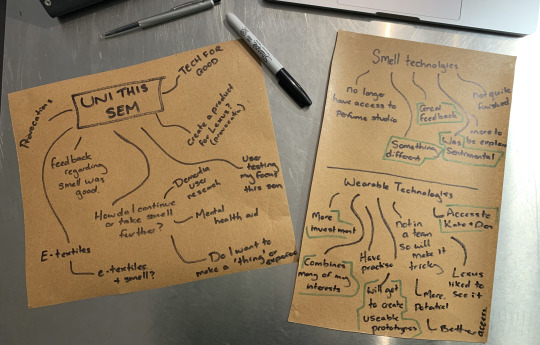 UNI THIS
SEM
TECH FOR
GOOD
Provocations
Create a product
for Lexus?
(provocation)
feedback
regarding
smell was
good.
User
testing
my focus
this sem
How do I continue
or take smell
further?
Dementia
user
research
Mental
health aid
E-textiles
e-textiles
+ smell?
Do I want to
make a 'thing' or
Smell technolgies
no longer
have access to
Perfume studio
Great
feedback
not quite
finished
Something
different
Was
Sentimental
more to
be explored
Wearable Technologies
More
investment
Combines
many of my
interests
Have
practise
Will get
to create
useable
prototypes
Not in
a team
so will
make it
tricky
More
Potential
Access to
Kate + Dan
Lexus
liked to
see it
Better